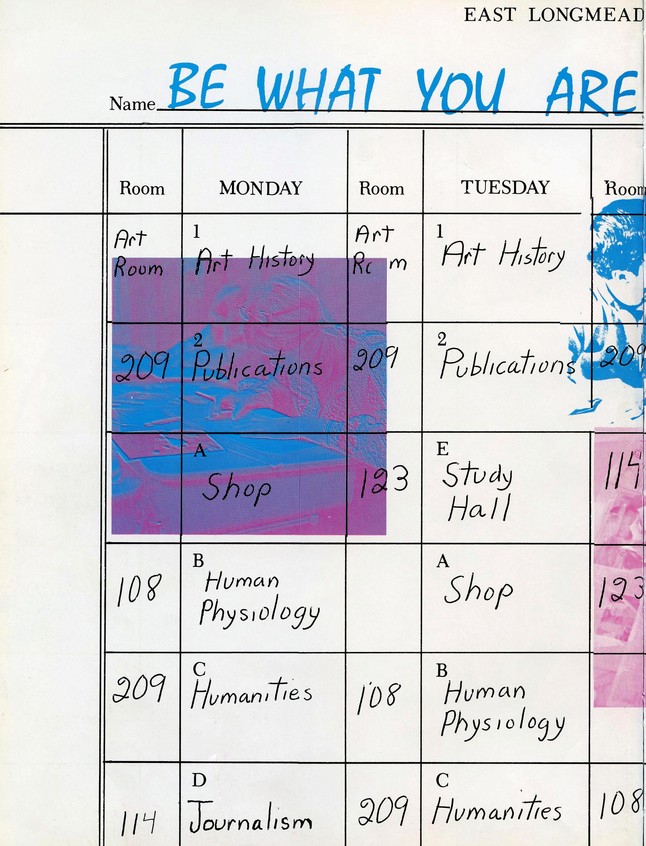 EAST LONGMEAD
Name BE WHAT YOU ARE
Room MONDAY Room TUESDAY Room
Art Room 1 Art History Art Ro m 1 Art History
209 2 Publications 209 2 Publications 209
A Shop 123 E Study Hall 114
108 B Human Physiology A Shop 123
209 C Humanities 108 B Human Physiology
114 D Journalism 209 C Humanities 108